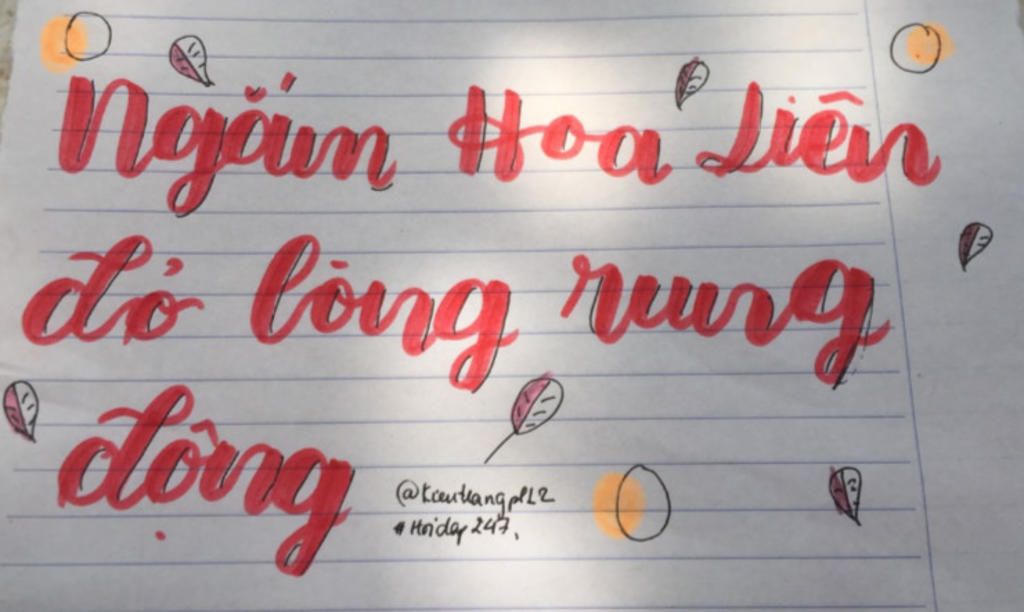 Ngắm Hoa Liên
đỏ lòng rung
động
#Hoidap247.